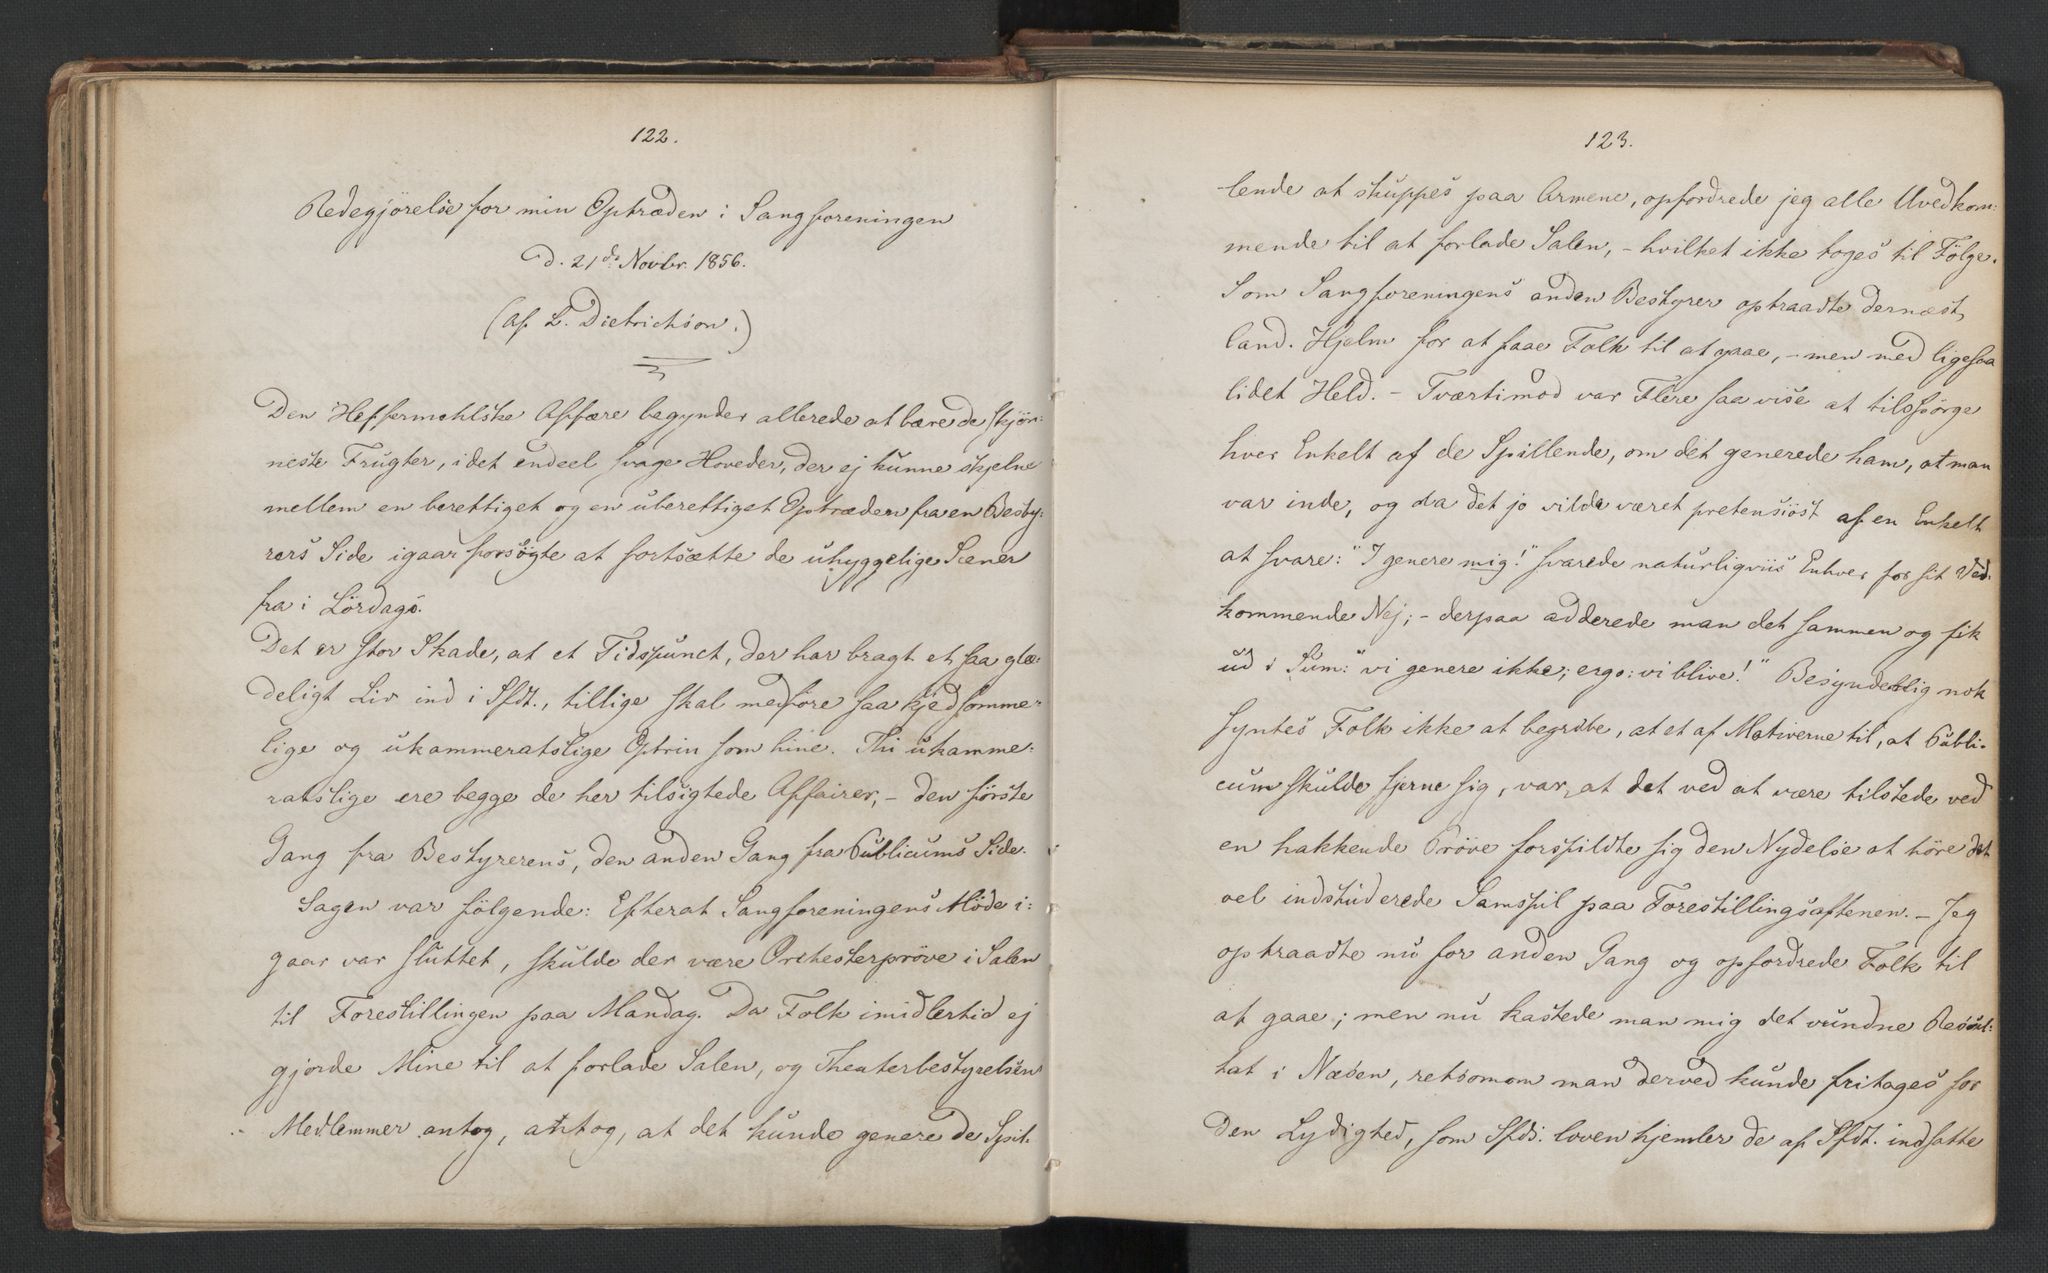 122.
Redegjörelse for min Optræden i Sangforeningen
d. 21de Novbr. 1856.
(af L. Dietrichson.)
Den Heffermehlske Affære begynder allerede at bære de skjön:
neste Frugter, idet endeel svage Hoveder, der ej kunne skjelne
mellem en berettiget og en uberettiget Optræden fra en Besty:
rers Side igaar forsögte at fortsætte de uhyggelige Scener
fra i Lördags.
Det er stor Skade, at et Tidspunct, der har bragt et saa glæ:
deligt Liv ind i Sfdt., tillige skal medföre saa kjedsomme:
lige og ukammeratslige Optrin som hine. Thi ukamme:
ratslige ere begge de her tilsigtede Affairer, – den förste
Gang fra Bestyrerens, den anden Gang fra Publicums Side.
Sagen var fölgende: Efterat Sangforeningens Möde i:
gaar var sluttet, skulde der være Orchesterpröve i Salen
til Forestillingen paa Mandag. Da Folk imidlertid ej
gjorde Mine til at forlade Salen, og Theaterbestyrelsens
Medlemmer antog, antog, at det kunde genere de Spil:
123.
lende at skuppes paa Armene, opfordrede jeg alle Uvedkom:
mende til at forlade Salen, – hvilket ikke toges til Fölge.
Som Sangforeningens anden Bestyrer optraadte dernæst
Cand. Hjelm for at faae Folk til at gaae, – men med ligesaa
lidet Held. – Tværtimod var Flere saa vise at tilspörge
hver Enkelt af de Spillende, om det generede ham, at man
var inde, og da det jo vilde været pretensiöst af en Enkelt
at svare: "I genere mig!" svarede naturligviis Enhver for sit Ved:
kommende Nej; – derpaa adderede man det sammen og fik
ud i Sum: "vi genere ikke; ergo: vi blive!" Besynderlig nok
syntes Folk ikke at begribe, at et af Motiverne til, at Publi:
cum skulde fjerne sig, var, at det ved at være tilstede ved
en hakkende Pröve forspildte sig den Nydelse at höre det
vel indstuderede Samspil paa Forestillingsaftenen. – Jeg
optraadte nu for anden Gang og opfordrede Folk til
at gaae; men nu kastede man mig det vundne Resul:
tat i Næsen, retsomom man derved kunde fritages for
den Lydighed, som Sfds. loven hjemler de af Sfdt. indsatte